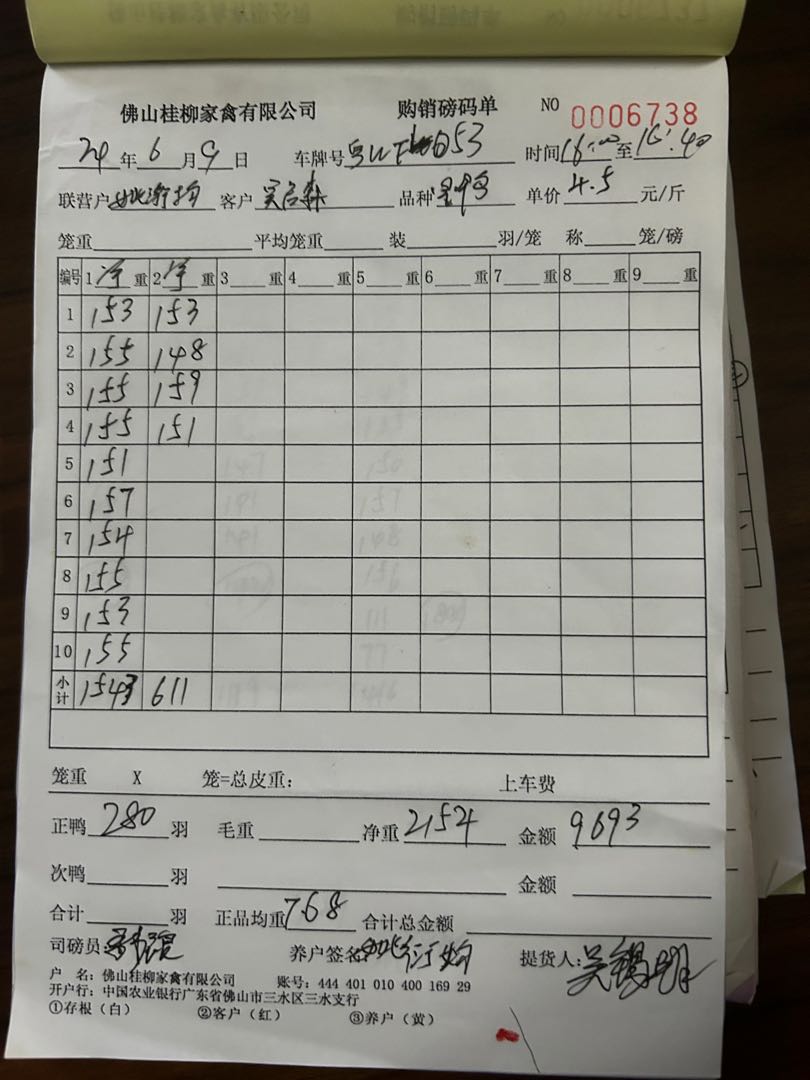 佛山桂柳家禽有限公司 购销磅码单 NO 0006738
24年6月9日 车牌号 053 时间16:00至16:40
联营户 客户 品种 单价4.5元/斤
笼重 平均笼重 装 羽/笼 称 笼/磅
编号 1净重 2净重 3重 4重 5重 6重 7重 8重 9重
1 153 153
2 155 148
3 155 159
4 155 151
5 151
6 157
7 154
8 155
9 153
10 155
小计 1543 611
笼重 X 笼=总皮重: 上车费
正鸭280羽 毛重 净重2154 金额9693
次鸭 羽 金额
合计 羽 正品均重7.68 合计总金额
司磅员: 养户签名: 提货人:吴锡明
户 名:佛山桂柳家禽有限公司 账号:444 401 010 400 169 29
开户行:中国农业银行广东省佛山市三水区三水支行
①存根(白) ②客户(红) ③养户(黄)